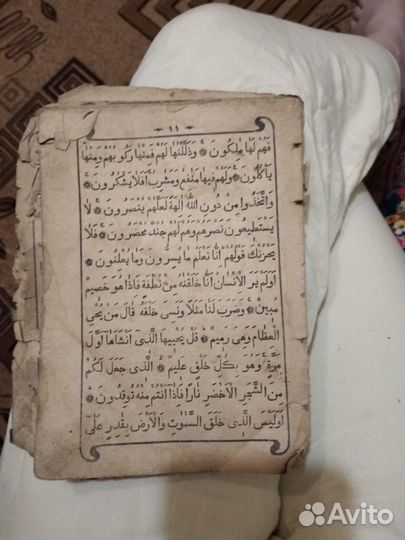 ١١
فَهُمْ لَهَا مَالِكُونَ ۞ وَذَلَّلْنَاهَا لَهُمْ فَمِنْهَا رَكُوبُهُمْ وَمِنْهَا
يَأْكُلُونَ ۞ وَلَهُمْ فِيهَا مَنَافِعُ وَمَشَارِبُ اَفَلَا يَشْكُرُونَ ۞
وَاتَّخَذُوا مِنْ دُونِ اللّٰهِ اٰلِهَةً لَعَلَّهُمْ يُنْصَرُونَ ۞ لَا
يَسْتَطِيعُونَ نَصْرَهُمْ وَهُمْ لَهُمْ جُنْدٌ مُحْضَرُونَ ۞ فَلَا
يَحْزُنْكَ قَوْلُهُمْ اِنَّا نَعْلَمُ مَا يُسِرُّونَ وَمَا يُعْلِنُونَ ۞
اَوَلَمْ يَرَ الْاِنْسَانُ اَنَّا خَلَقْنَاهُ مِنْ نُطْفَةٍ فَاِذَا هُوَ خَصِيمٌ
مُبِينٌ ۞ وَضَرَبَ لَنَا مَثَلًا وَنَسِيَ خَلْقَهُ قَالَ مَنْ يُحْيِي
الْعِظَامَ وَهِيَ رَمِيمٌ ۞ قُلْ يُحْيِيهَا الَّذِي اَنْشَاَهَا اَوَّلَ
مَرَّةٍ وَهُوَ بِكُلِّ خَلْقٍ عَلِيمٌ ۞ الَّذِي جَعَلَ لَكُمْ
مِنَ الشَّجَرِ الْاَخْضَرِ نَارًا فَاِذَا اَنْتُمْ مِنْهُ تُوقِدُونَ ۞
اَوَلَيْسَ الَّذِي خَلَقَ السَّمٰوَاتِ وَالْاَرْضَ بِقَادِرٍ عَلٰى
Avito